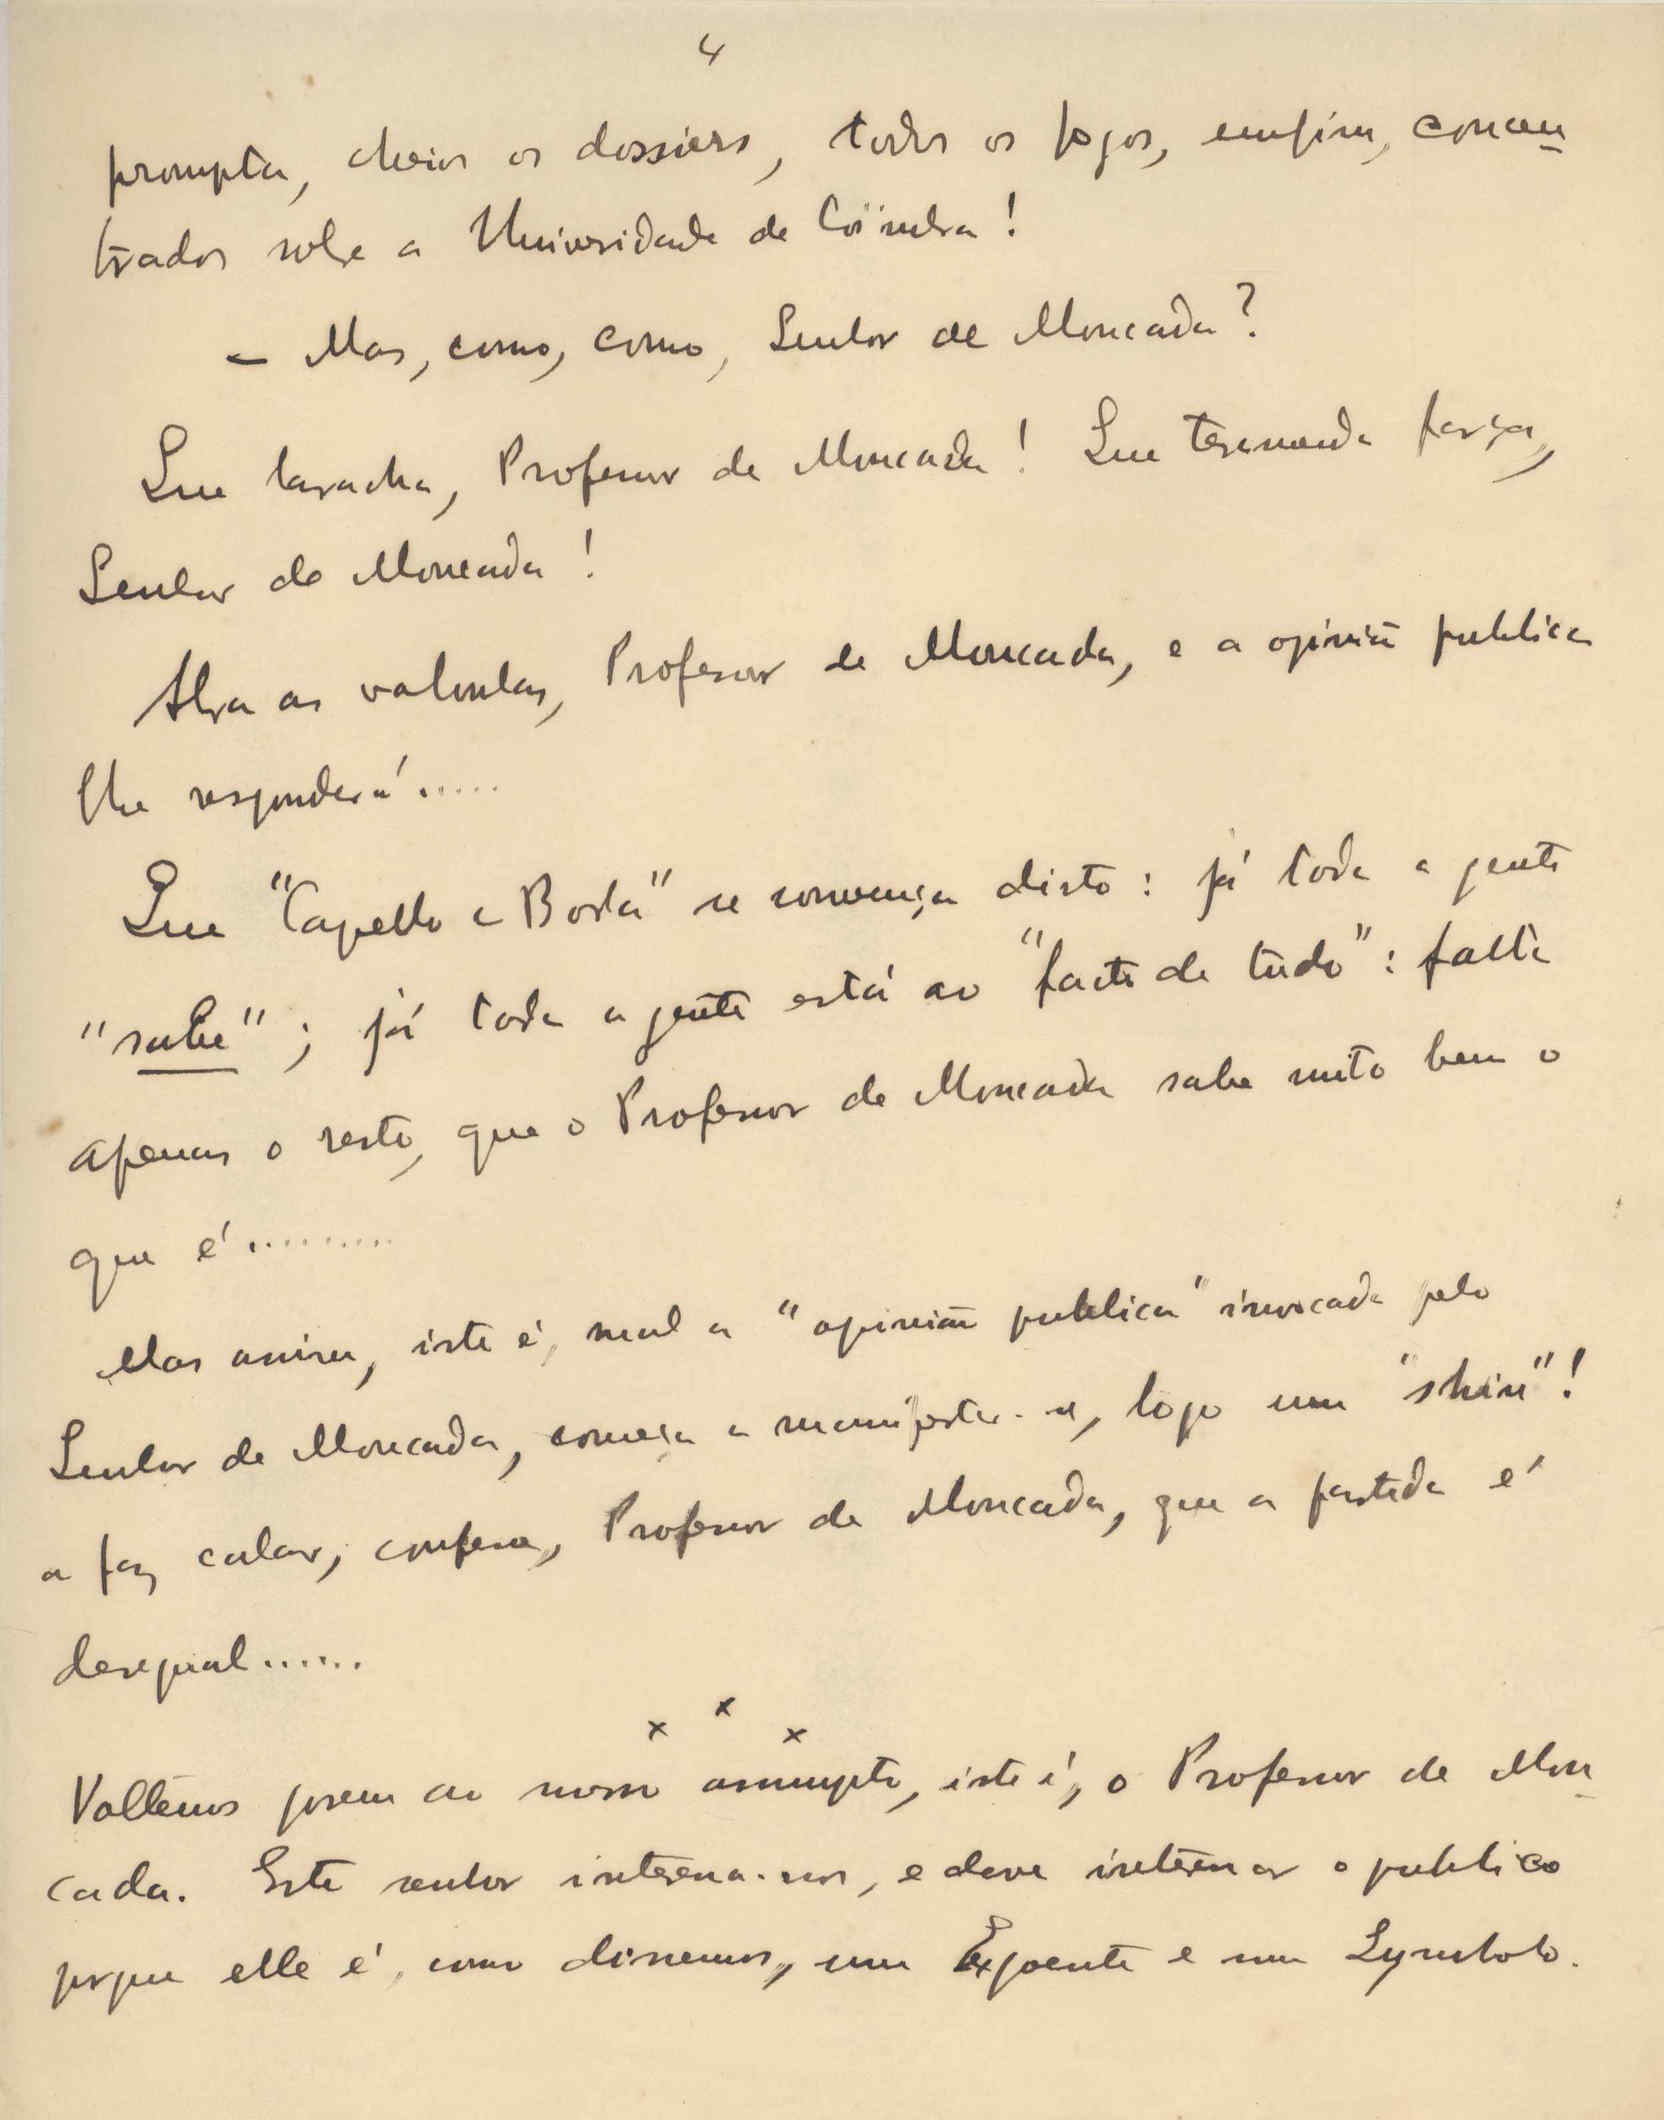 4
prompta, cheios os dossiers, todos os fogos, emfim, concen
trados sobre a Universidade de Coïmbra!
– Mas, como, como, Senhor de Moncada?
Que laracha, Professor de Moncada! Que tremenda farça,
Senhor de Moncada!
Abra as valvulas, Professor de Moncada, e a opinião publica
lhe responderá.....
Que "Capello e Borla" se convença disto: já toda a gente
"sabe"; já toda a gente está ao "facto de tudo": falta
apenas o resto, que o Professor de Moncada sabe muito bem o
que é.........
Mas assim, isto é, mal a "opinião publica" invocada pelo
Senhor de Moncada, começa a manifestar-se, logo um "shiu"!
a faz calar, confesse, Professor de Moncada, que a partida é
desegual......
x x x
Voltemos porem ao nosso assumpto, isto é, o Professor de Mon
cada. Este senhor interessa-nos, e deve interessar o publico
porque elle é, como dissemos, um Expoente e um Symbolo.